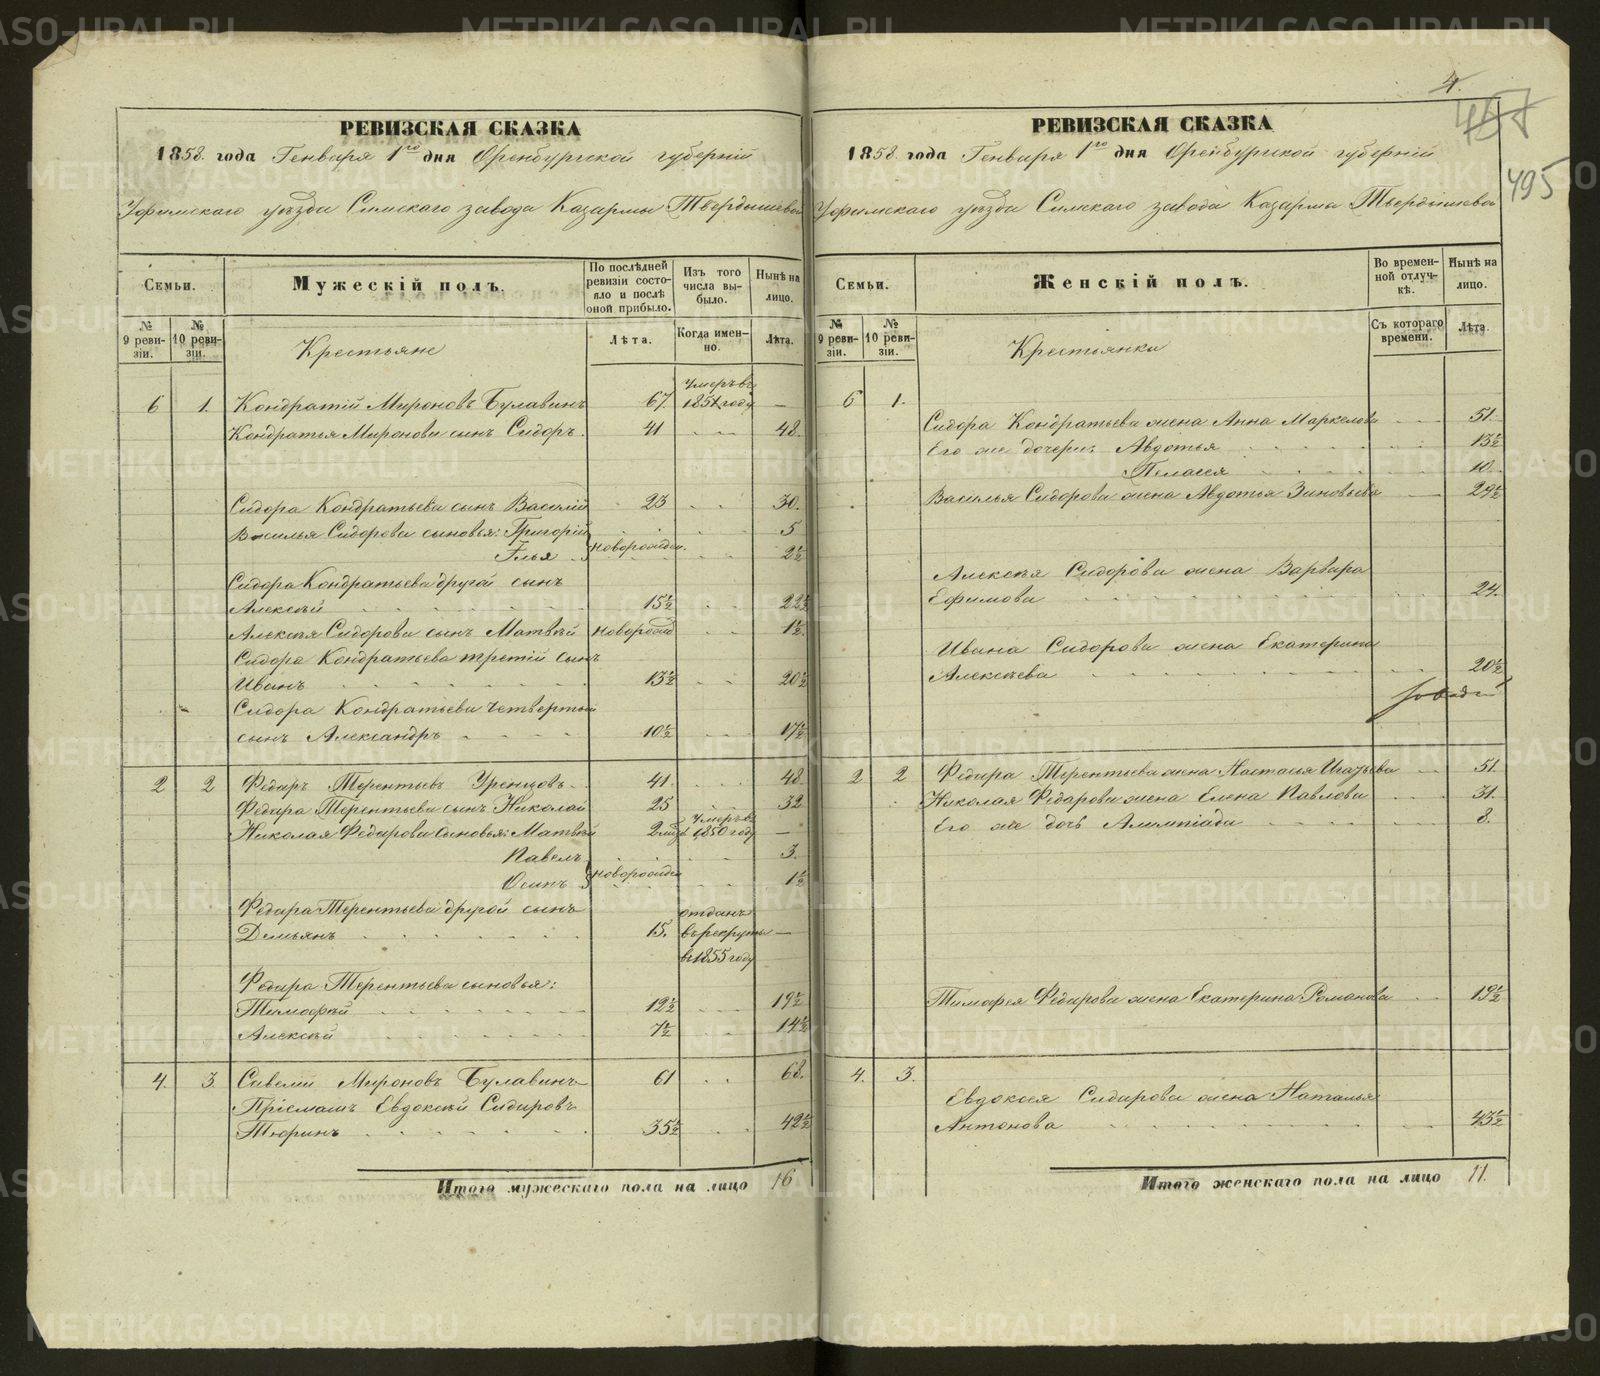 РЕВИЗСКАЯ СКАЗКА
1858. года Генваря 1го дня Оренбургской губерніи
Уфимскаго уѣзда Симскаго завода Казармы Твердышева
Семьи.
Мужескій полъ.
По послѣдней ревизіи состояло и послѣ оной прибыло.
Изъ того числа выбыло.
Нынѣ на лицо.
№ 9 ревизіи.
№ 10 ревизіи.
Крестьяне
Лѣта.
Когда именно.
Лѣта.
умеръ въ
6 1. Кондратій Мироновъ Булавинъ 67. 1851 году —
Кондратья Миронова сынъ Сидоръ. 41 48.
Сидора Кондратьева сынъ Василій 23 30.
Василья Сидорова сыновья: Григорій 5
Илья новорожден. 2½
Сидора Кондратьева другой сынъ
Алексѣй 15½ 22½
Алексѣя Сидорова сынъ Матвѣй новорожд 1½.
Сидора Кондратьева третій сынъ
Иванъ 13½ 20½
Сидора Кондратьева четвертый
сынъ Александръ 10½ 17½
2 2 Ѳедаръ Терентьевъ Уренцовъ 41. 48
Ѳедара Терентьева сынъ Николай 25 32
умеръ въ
Николая Ѳедарова сыновья: Матвѣй 1850 году —
Павелъ 3.
Осипъ новорожден 1½
Ѳедара Терентьева другой сынъ отданъ
Демьянъ 15. въ рекруты —
въ 1855 году
Ѳедара Терентьева сыновья:
Тимофѣй 12½ 19½
Алексѣй 7½ 14½
4. 3. Савелій Мироновъ Булавинъ 61 68.
Пріемышъ Евдокѣй Сидаровъ
Тюринъ 35½ 42½
Итого мужескаго пола на лицо 16
4.
457
495
РЕВИЗСКАЯ СКАЗКА
1858. года Генваря 1го дня Оренбургской губерніи
Уфимскаго уѣзда Симскаго завода Казарма Твердышева
Семьи.
Женскій полъ.
Во временной отлучкѣ.
Нынѣ на лицо.
№ 9 ревизіи.
№ 10 ревизіи.
Крестьянки
Съ котораго времени.
Лѣта.
6 1.
Сидора Кондратьева жена Анна Маркелова 51.
Его же дочери: Авдотья 13½
Пелагея 10.
Василья Сидорова жена Авдотья Зиновьева 29½
Алексѣя Сидорова жена Варвара
Ефимова 24.
Ивана Сидорова жена Екатерина
Алексѣева 20½
2 2 Ѳедара Терентьева жена Настасья Игатьева 51.
Николая Ѳедарова жена Елена Павлова 31.
Его же дочь Алимпіада 8.
Тимофея Ѳедарова жена Екатерина Романова 19½
4. 3.
Евдокея Сидарова жена Наталья
Антонова 43½
Итого женскаго пола на лицо 11.
METRIKI.GASO-URAL.RU